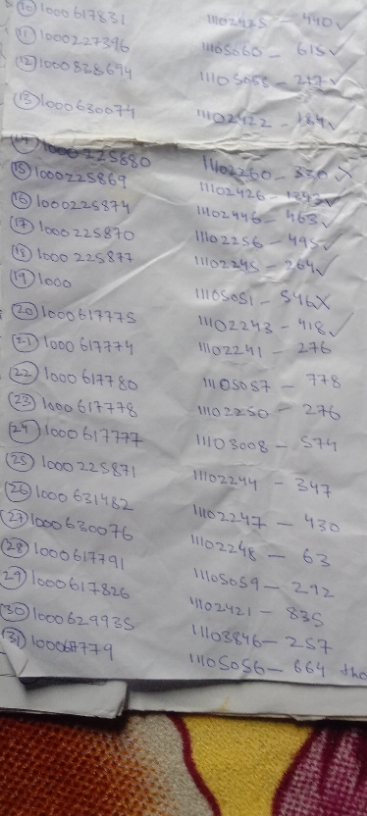 10 1000617831 11102425 - 440 ✓
11 1000227396 11105060 - 615 ✓
12 1000828694 11105058 - 217 ✓
13 1000630074 11102422 - 184 ✓
14 1000225880 11102260 - 330 X
15 1000225869 11102426 - 1343 ✓
16 1000225874 11102446 - 463 ✓
17 1000225870 11102256 - 495 ✓
18 1000225877 11102245 - 264 ✓
19 1000 11105051 - 546 X
20 1000617775 11102243 - 418 ✓
21 1000617774 11102241 - 276
22 1000617780 11105057 - 778
23 1000617778 11102250 - 276
24 1000617777 11103008 - 574
25 1000225871 11102244 - 347
26 1000631482 11102247 - 430
27 1000630076 11102248 - 63
28 1000617791 11105059 - 292
29 1000617826 11102421 - 835
30 1000629935 11103846 - 257
31 100067779 11105056 - 664